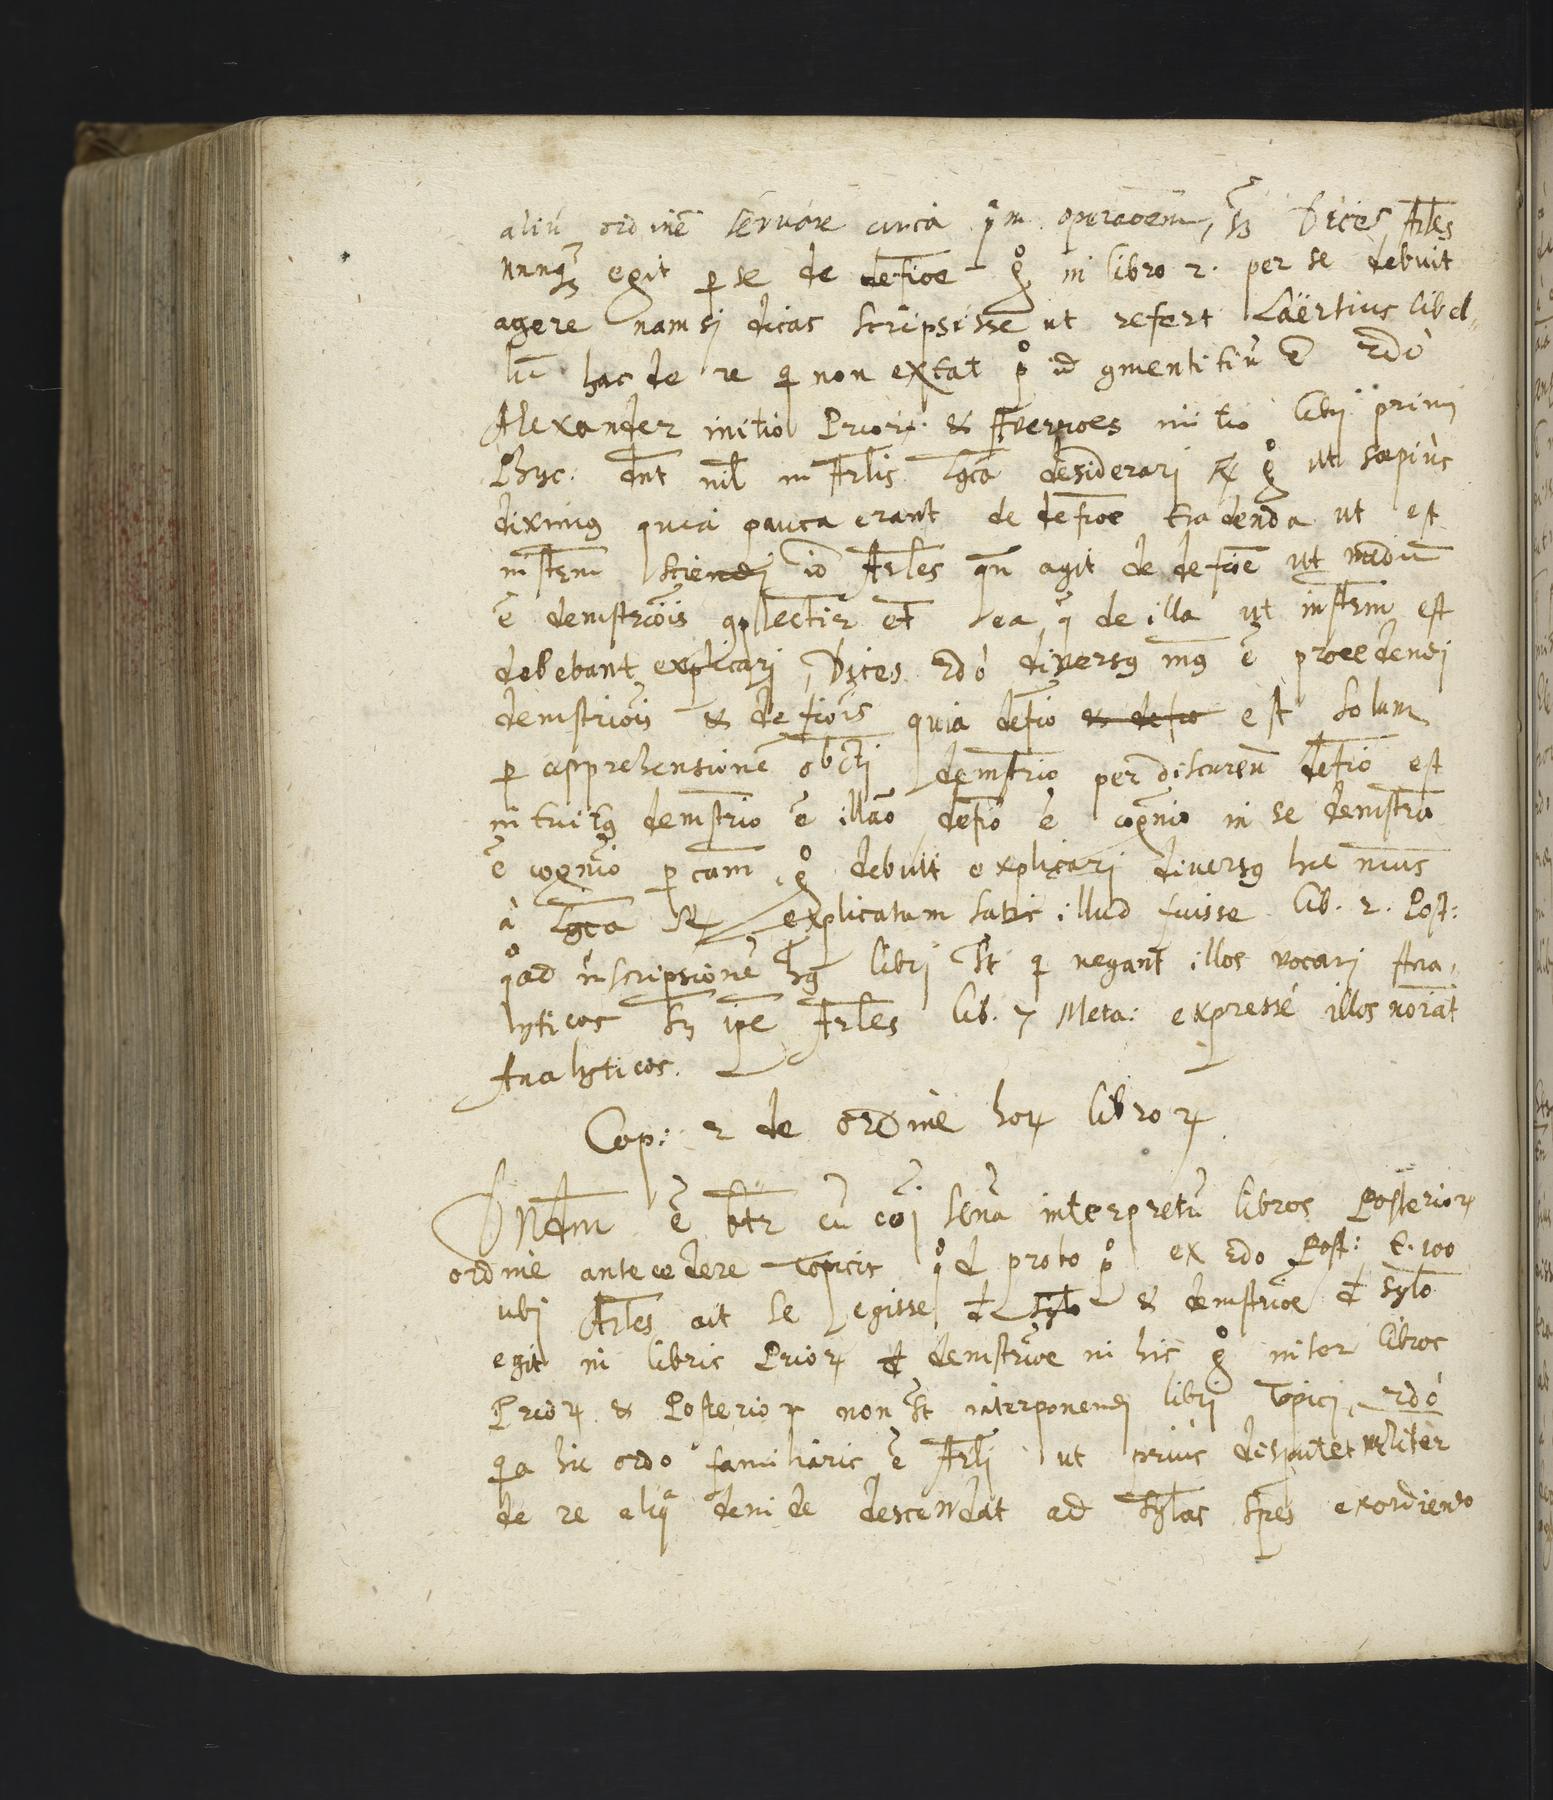 aliũ ordinẽ servare circa p̃m operaoem, sʒ Dices Arl̃es
nunqʒ egit p se de defĩoe gͦ in libro 2. per se debuit
agere nam si dicas scripsisse ut refert Laërtius libel„
lũ hac de re q̃ non extat pͦ id gmentitiũ ẽ 2dò
Alexander initio Prioꝝ. & Averroes initio libri primi
Phyc: dñt nil̃ in Arl̃is lg̃ca desiderari ℞ gͦ ut sæpiùs
diximꝰ quia pauca erant de defĩoe tradenda ut est
instr̃m sciendi iõ Arl̃es qñ agit de defĩoe ut mediũ
ẽ demstr̃iois et̃ ea q̃ de illa ut instr̃m est
debebant explicari, Dices 2dò diversꝰ mꝰ ẽ procedendi
demstr̃iois & defĩois quia defĩo & defio est solum
p apprehensionẽ obcti demstr̃io per discursũ defĩo est
intuitꝰ demstr̃io ẽ illão defĩo ẽ cogñio in se demstr̃o
ẽ cogñio p cam̃, gͦ debuit explicari diversꝰ hic mͣus
à lg̃ca ℞ explicatum satis illud fuisse lib. 2. Post:
qͦad inscripsionẽ hꝰ libri st̃ q̃ negant illos vocari Ana„
lyticos sʒ ip̃e Arl̃es lib. 7 Meta: expressè illos noĩat
Analyticos.
Cap: 2 de ordine hoꝝ libroꝝ
Dñdm ẽ br̃tr cũ cõi sẽna interpretũ libros Posterioꝝ
ordine antecedere Topicis qͦd probo pͦ ex 2do Post: t. 100
ubi Arl̃es ait se egisse đ sylo & demstr̃ioe đ sylo
egit in libris Prioꝝ đ demstr̃ioe in his gͦ inter libros
Prioꝝ & Posterioꝝ non st̃ interponendi libri Topici, 2dò
qa hic ordo familiaris ẽ Arl̃i ut priùs disputet vl̃iter
de re aliqͣ deinde descendat ad sylas spẽs exordiendo